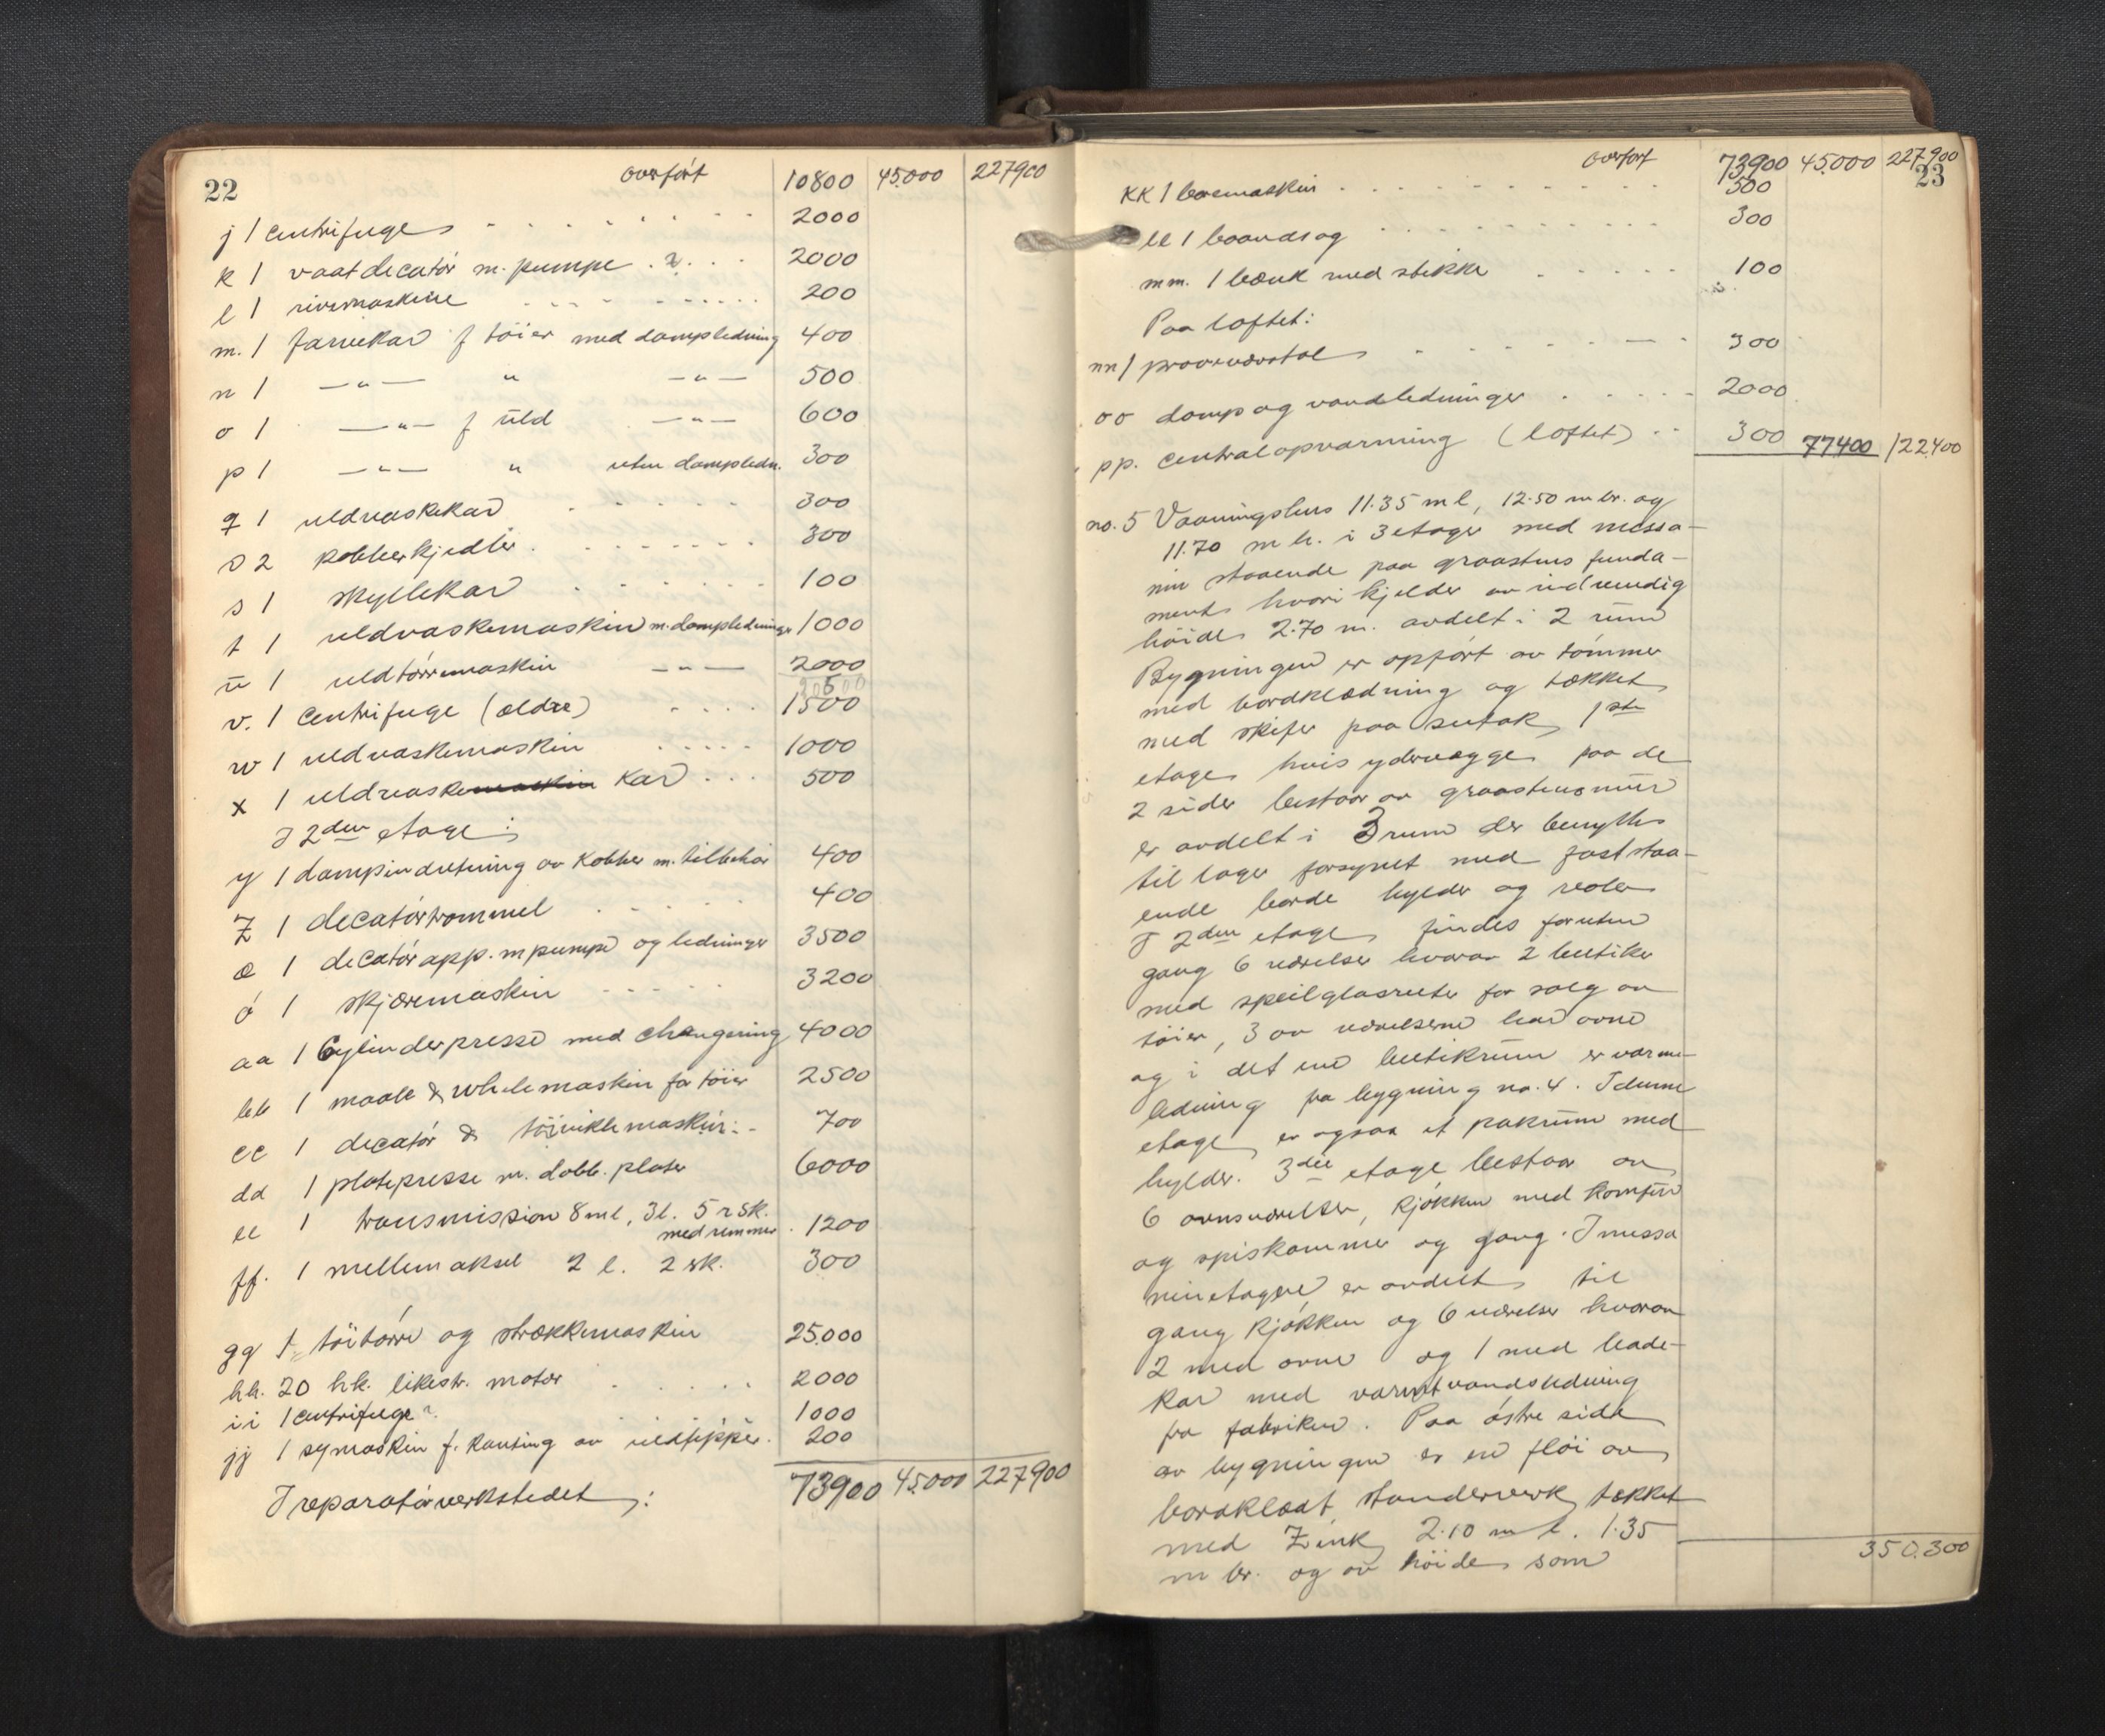 22 overført 10800 45.000 227900
j 1 centrifuge 2000
k 1 vaatdecatør m. pumpe . 2. 2000
l 1 rivemaskine 200
m. 1 farvekar f tøier med dampledning 400
n 1 —"— " —"— 500
o 1 —"— f uld —"— 600
p 1 —"— " uten dampledn. 300
q 1 uldvaskekar 300
r 2 kobberkjedler 300
s 1 skyllekar 100
t 1 uldvaskemaskin m. dampledninger 1000
u 1 uldtørremaskin —"— 2000
v. 1 centrifuge (ældre) 1500
w 1 uldvaskemaskin 1000
x 1 uldvaskemaskin kar 500
I 2den etage:
y 1 dampindretning av kobber m. tilbehør 400
z 1 decatørtrommel 400
æ 1 decatørapp. m pumpe og ledninger 3500
ø 1 skjæremaskin 3200
aa 1 Cylinderpresse med changering 4000
bb 1 maale & rullemaskin for tøier 2500
cc 1 decatør & tøivikle maskin 700
dd 1 platepresse m. dobb. plater 6000
ee 1 transmission 8 m l, 3 l. 5 r sk.
med remmer 1200
ff. 1 mellemaksel 2 l. 2 sk. 300
gg 1 tøitørre og strækkemaskin 25.000
hh. 20 hk. likestr. motor 2000
ii 1 centrifuge 1000
jj 1 symaskin f. kanting av uldtæpper. 200
I reparatørverkstedet: 73900 45.000 227900
overført 73900 45.000 227.900
23
KK 1 boremaskin 500
ll 1 baandsag 300
mm. 1 bænk med stikke 100
Paa loftet:
nn 1 prøvevævstol 300
oo damp og vandledninger 2000
pp. centralopvarming (loftet) 300 77400 122.400
no. 5 Vaaningshus 11.35 m l, 12.50 m br. og
11.70 m h. i 3 etager med messa-
nin staaende paa graastens funda-
ment hvori kjelder av indvendig
høide 2.70 m. avdelt i 2 rum
Bygningen er opført av tømmer
med bordklædning og tækket
med skifer paa sutak, 1ste
etage hvis ydervægge paa de
2 sider bestaar av graastensmur
er avdelt i 3 rum der benyttes
til lager forsynet med faststaa-
ende borde hylder og reoler
I 2den etage findes foruten
gang 6 værelser hvorav 2 butiker
med speilglasruter for salg av
tøier, 3 av værelserne har ovne
og i det ene butikrum er varme-
ledning fra bygning no. 4. I denne
etage er ogsaa et pakrum med
hylder. 3die etage bestaar av
6 ovnsværelser, kjøkken med komfur
og spiskammer og gang. I messa
ninetagen er avdelt til
gang kjøkken og 6 værelser hvorav
2 med ovne og 1 med bade-
kar med varmtvandsledning
fra fabriken. Paa østre side
av bygningen er en fløi av
bordklædt stenderverk tækket
med Zink, 2.10 m l. 1.35
m br. og av høide som 350.300